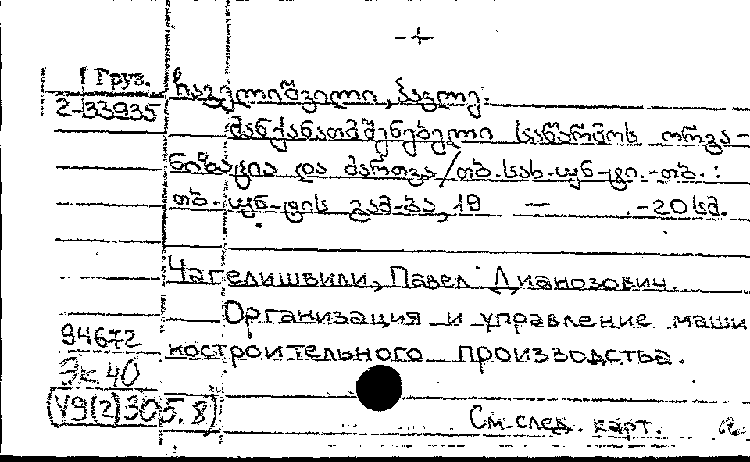 Груз.
2-33935
ჩაგელიშვილი, პავლე.
მანქანათმშენებელი საწარმოს ორგა-
ნიზაცია და მართვა/თბ. სახ. უნ-ტი.-თბ.:
თბ. უნ-ტის გამ-ბა, 19 — .-20 სმ.
Чагелишвили, Павел Дианозович.
Организация и управление маши
ностроительного производства.
94672
Эк 40
(У9(2)305.8)
См. след. карт.